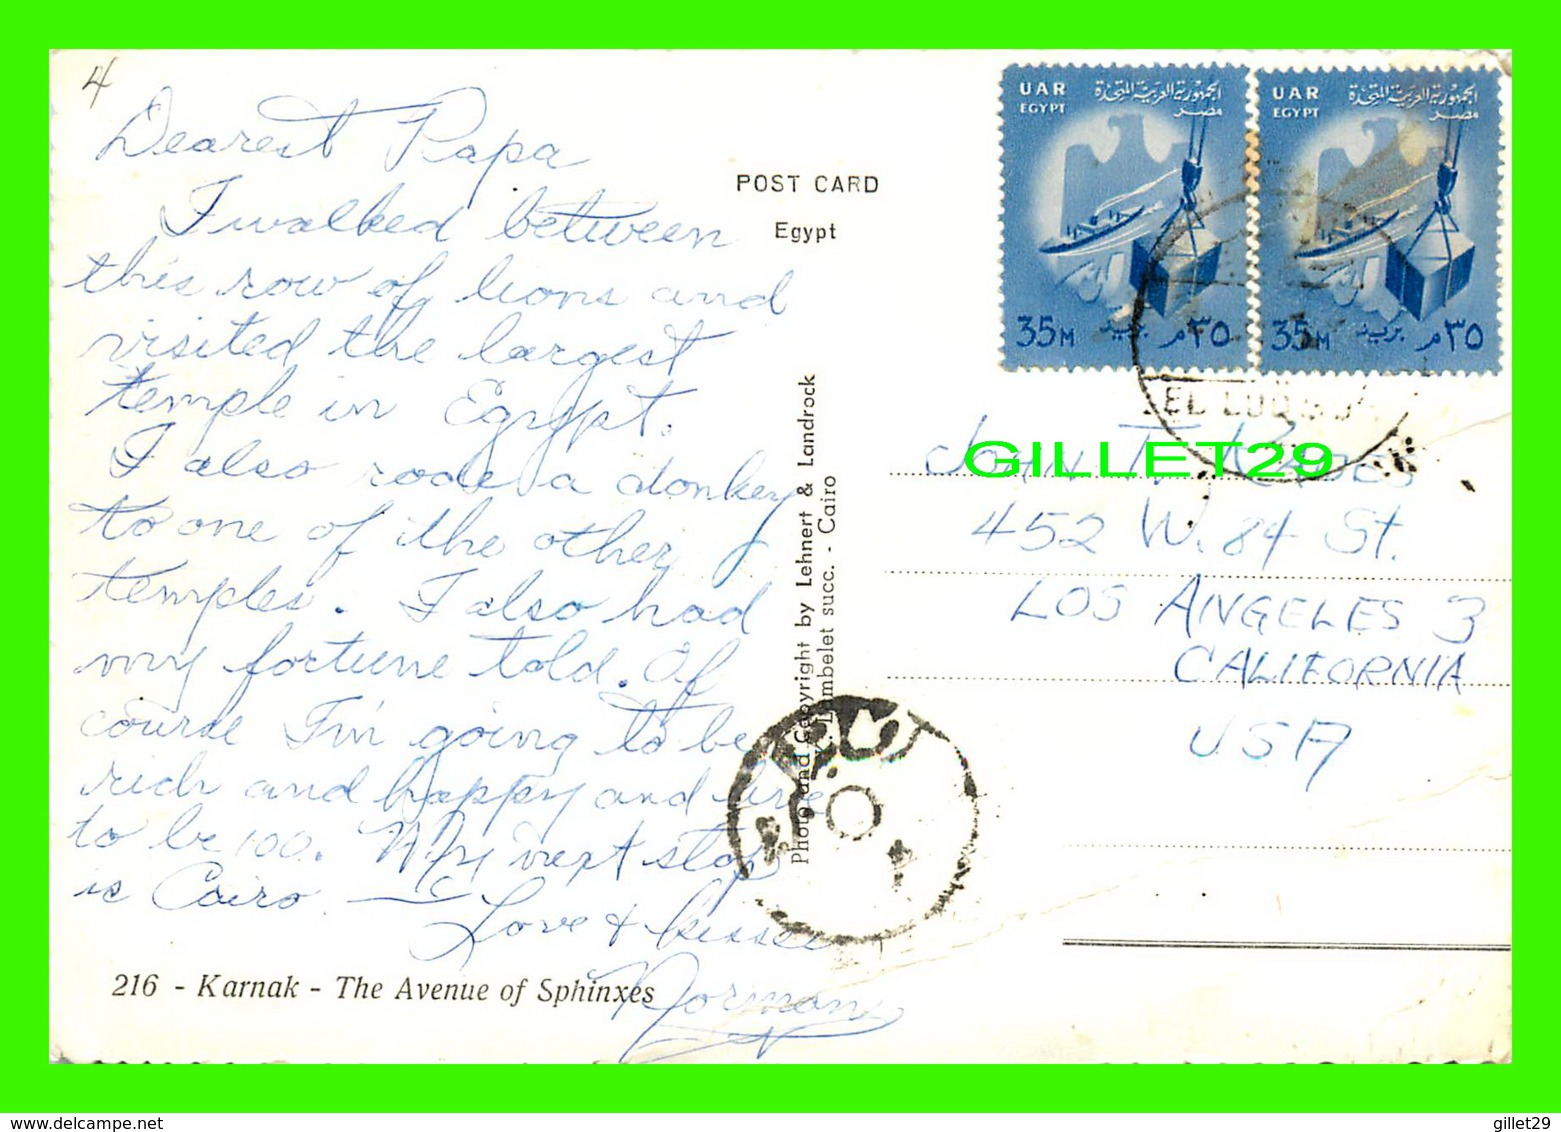 4
Dearest Papa
I walked between
this row of lions and
visited the largest
temple in Egypt.
I also rode a donkey
to one of the other
temples. I also had
my fortune told. Of
course I'm going to be
rich and happy and live
to be 100. My next stop
is Cairo —
Love & kisses
Norman
216 - Karnak - The Avenue of Sphinxes
POST CARD
Egypt
Photo and Copyright by Lehnert & Landrock
Lambelet succ. - Cairo
UAR
EGYPT
الجمهورية العربية المتحدة
مصر
35 M
بريد
٣٥ م
UAR
EGYPT
الجمهورية العربية المتحدة
مصر
35 M
بريد
٣٥ م
John T.
GILLET29
452 W. 84 St.
LOS ANGELES 3
CALIFORNIA
USA
gillet29